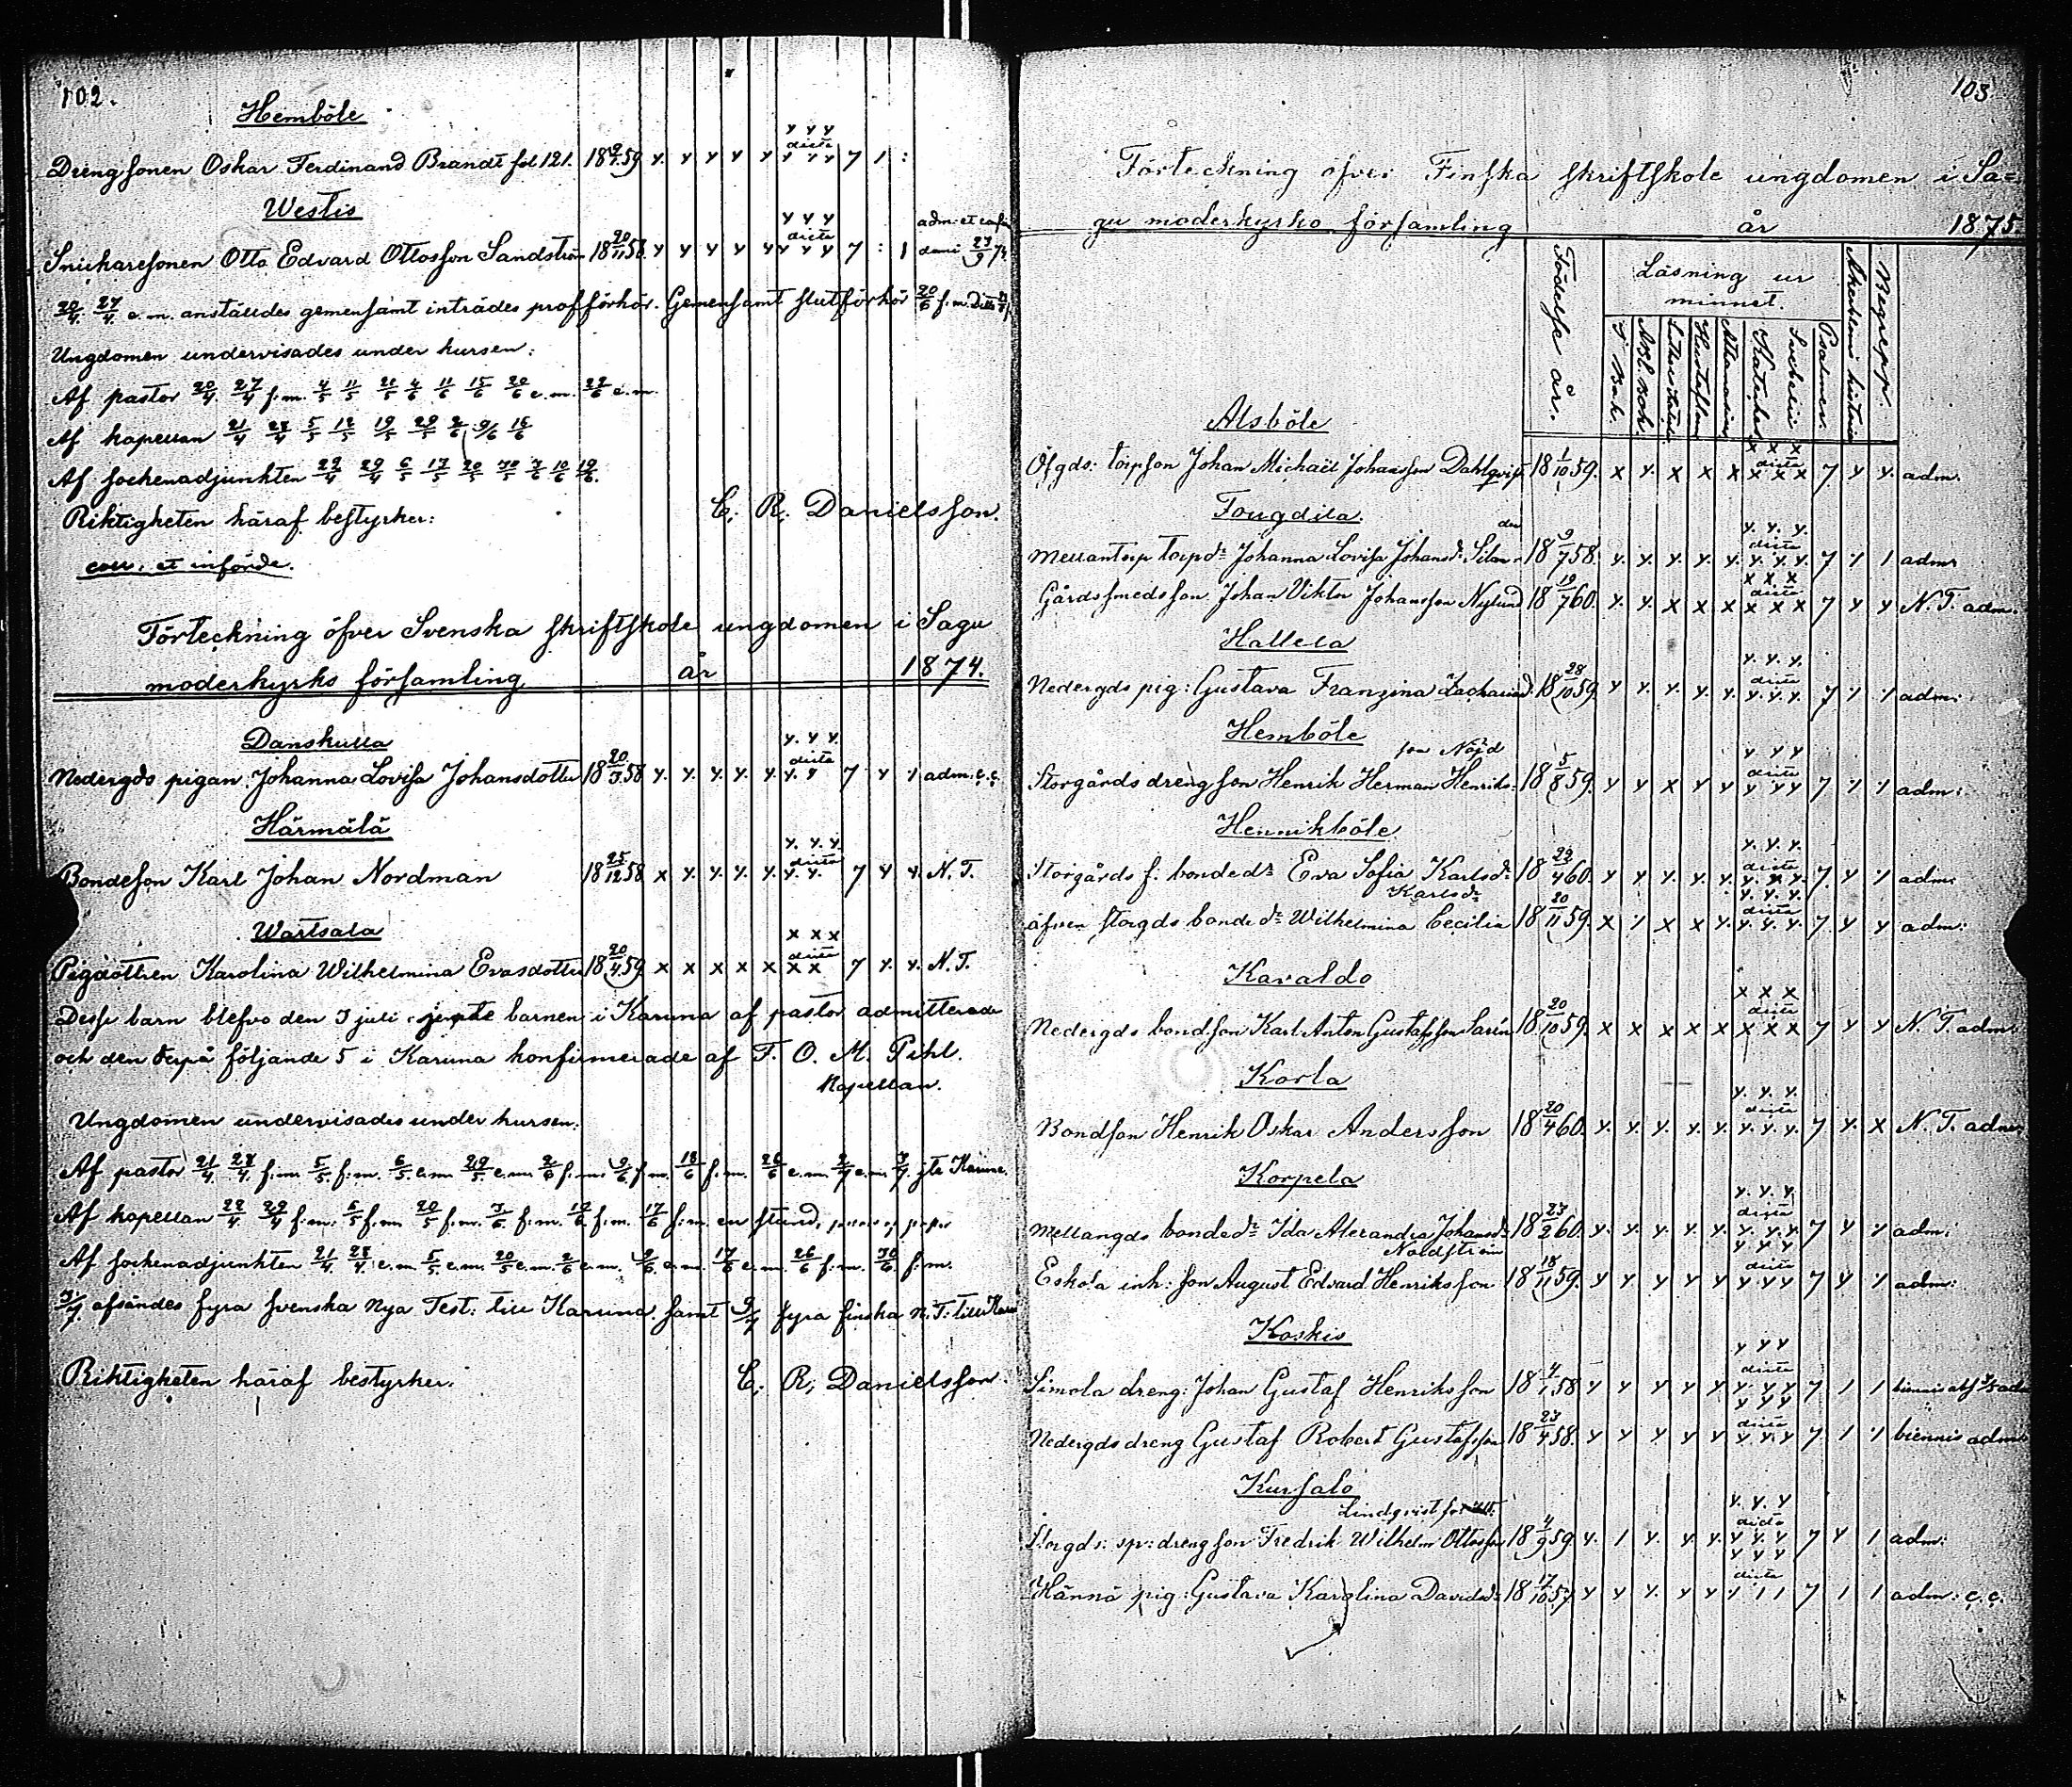 102.
Hemböle
Drengsonen Oskar Ferdinand Brandt fol 121. 18 2/7 59 y. y y y y y y y dicta y y y 7 1 :
Westis
adm: et confir
Snickaresonen Otto Edvard Ottosson Sandström 18 20/11 58 y y y y y y y y dicta y y y 7 : 1 dom: 27/9 74
20/4. 27/4. e.m. anställdes gemensamt inträdes profförhör. Gemensamt slutförhör 20/6 f.m.
Ungdomen undervisades under kursen:
Af pastor 20/4 27/4 f.m.
Af kapellan 21/4 28/4 5/5 12/5 19/5
Af sockenadjunkten 22/4 29/4 6/5
Riktigheten häraf bestyrker: C. R. Danielsson.
coll. et införde.
Förteckning öfver Svenska skriftskole ungdomen i Sagu
moderkyrko församling år 1874.
Danskulla
Nedergds pigan Johanna Lovisa Johansdotter 18 20/3 58 y. y. y. y. y. y. y y. dicta y. y 7 y 1 adm: c. c.
Härmälä
Bondeson Karl Johan Nordman 18 25/12 58 x y. y. y. y. y. y. y. dicta y. y. 7 y y. N. T.
Wartsala
Pigdottren Karolina Wilhelmina Evasdotter 18 20/4 59 x x x x x x x x dicta x x 7 y. y. N. T.
Desse barn blefvo den 3 juli jemte barnen i Karuna af pastor admitterade
och den derpå följande 5 i Karuna konfirmerade af F. O. M. Pihl.
Kapellan.
Ungdomen undervisades under kursen:
Af pastor 21/4 28/4 f.m. 5/5 f.m. 6/5 e.m. 29/5 e.m. 2/6 f.m. 9/6 f.m. 18/6 f.m. 26/6 e.m. 2/7 e.m. 3/7 Karuna.
Af kapellan 22/4 29/4 f.m. 6/5 f.m. 20/5 f.m. 3/6 f.m. 12/6 f.m. 17/6 f.m. en stund,
Af sockenadjunkten 21/4 28/4 e.m. 5/5 e.m. 20/5 e.m. 2/6 e.m. 9/6 e.m. 17/6 e.m. 26/6 f.m. 30/6 f.m.
3/7 afsändes fyra svenska Nya Test: till Karuna samt 9/7 fyra finska N. T. till
Riktigheten häraf bestyrker. C. R. Danielsson.
103.
Förteckning öfver Finska skriftskole ungdomen i Sa=
gu moderkyrko församling år 1875.
Födelse år.
Läsning ur
minnet.
I Bok.
Abc bok.
Hustaflan
Katekes
Svebelii
Psalmer.
historia
Begrepp.
Alsböle
Öfgds: torpson Johan Michaël Johansson Dahlqvist 18 1/10 59. x y. x x x x x x dicta x x x 7 y y. adm.
Fougdila.
Mellantorp torpdr Johanna Lovisa Johansdr 18 9/7 58. y. y. y. y. y. y. y. y. dicta y. y. y. 7 1 1 adm
Gårdssmedsson Johan Viktor Johansson Nylund 18 19/7 60. y. y. x x x x x x dicta x x x 7 y y N. T. adm.
Hallela
Nedergds pig: Gustava Franzina Zachariad. 18 28/10 59. y y y. y. y. y. y. y. dicta y. y. y. 7 1 1 adm:
Hemböle
son Nöjd
Storgårds drengson Henrik Herman Henriks- 18 5/8 59. y y x y y y y y dicta y y y 7 1 1 adm:
Hennikböle
Storgårds f. bondedr Eva Sofia Karlsdr 18 29/4 60. y y. y. y. y. y. y. y. dicta y. y. y. 7 y 1 adm:
Karlsdr
äfven storgds bondedr Wilhelmina Cecilia 18 20/11 59. x 1 x x y. y. y. y. dicta y. y. y. 7 y y adm:
Karaldo
Nedergds bondson Karl Anton Gustafsson Sarin 18 20/10 59. x x x x x x x x dicta x x x 7 y y N. T. adm:
Korla
Bondson Henrik Oskar Andersson 18 20/4 60. y. y. y. y. y. y. y. y. dicta y. y. y. 7 y. x N. T. adm:
Korpela
Mellangds bondedr Ida Alexandra Johansdr 18 23/2 60. y. y. y. y. y. y. y. y. dicta y. y. y. 7 y 1 adm:
Nordström
Eskola inh: son August Edvard Henriksson 18 18/11 59. y y y y y y y y dicta y y y 7 y 1 adm:
Koskis
Simola dreng: Johan Gustaf Henriksson 18 4/1 58 y y y y y y y y dicta y. y y 7 1 1 biennis
Nedergds dreng Gustaf Robert Gustafsson 18 23/4 58. y y y y y y y y dicta y. y. y 7 1 1 biennis adm:
Kursalo
Lindqvist
Storgds: sp: drengson Fredrik Wilhelm Ottosson 18 4/9 59 y. 1 y. y. y y. y. y dicta y y. y 7 y 1 adm:
Hännö pig: Gustava Karolina Davidsdr 18 17/10 57 y y y. y y y y y dicta 1 1 1 7 1 1 adm: c. c.